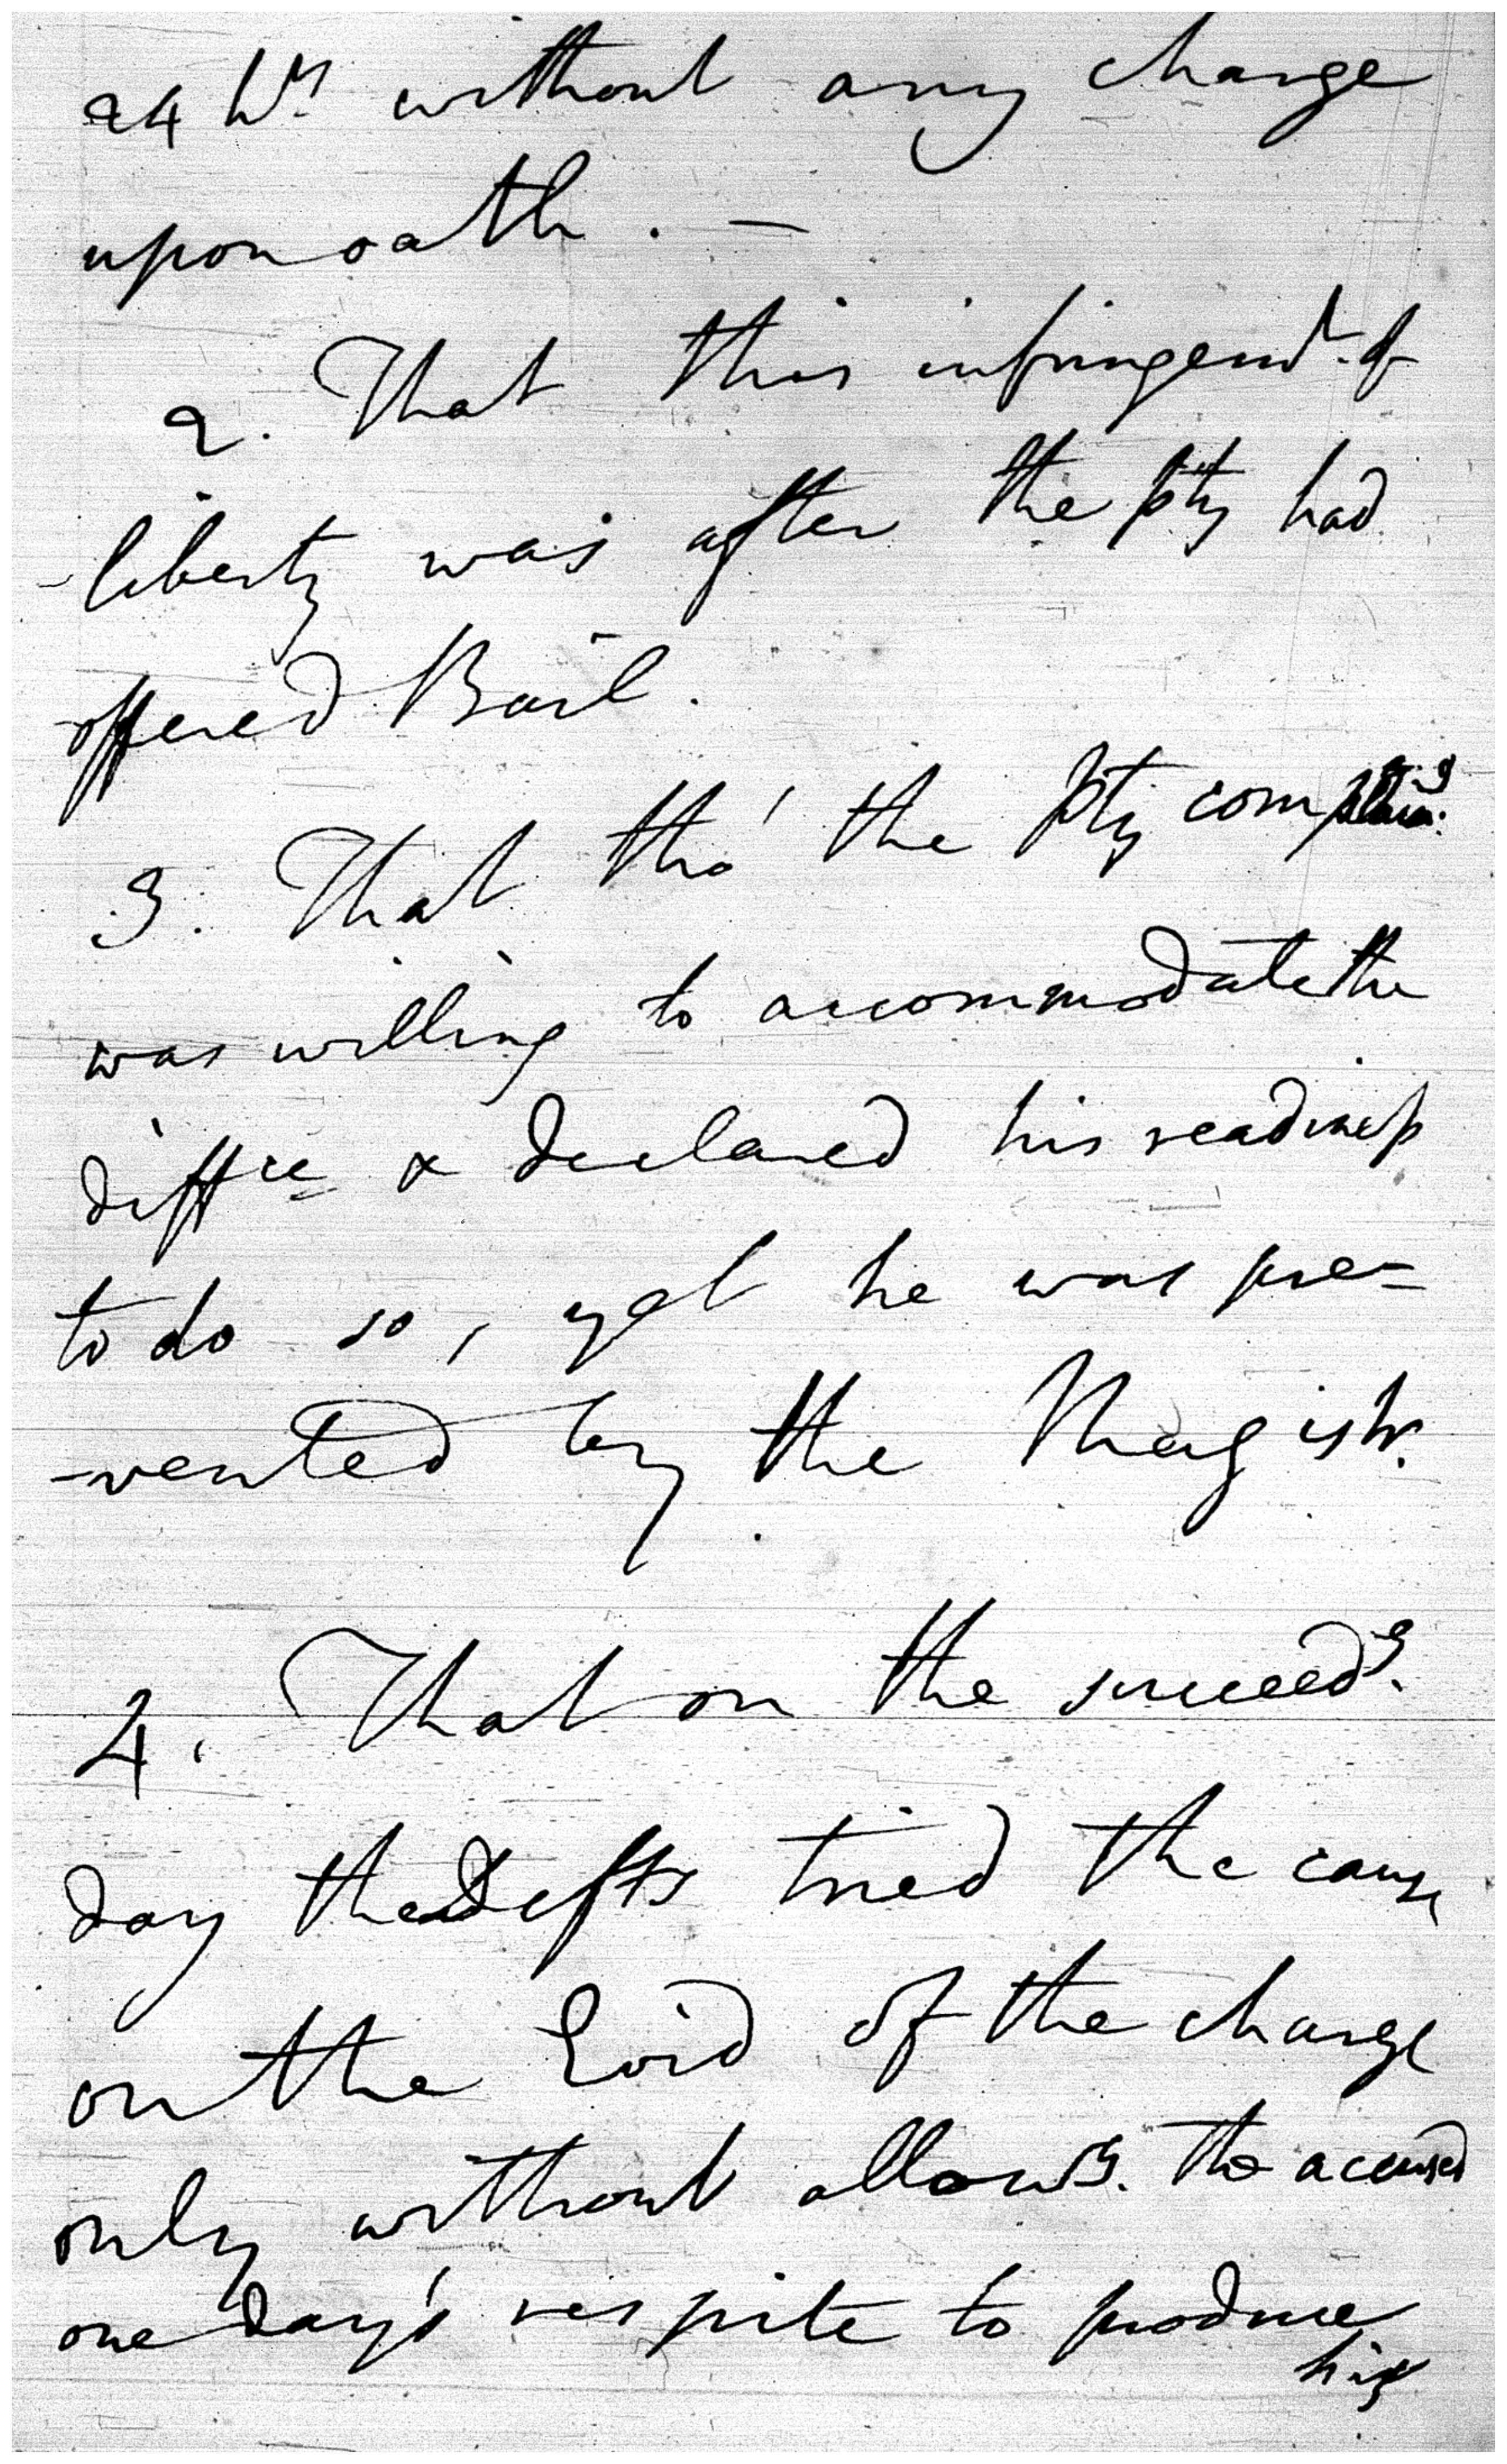 24 hrs without any charge
upon oath. —
2. That this infringemt. of
liberty was after the pty had
offered Bail.
3. That tho' the pty complaing.
was willing to accommodate the
diffce & declared his readiness
to do so, yet he was pre=
-vented by the Magistr.
4. That on the succeedg.
day the Defts tried the cause
on the Evid of the charge
only without allowg. the accused
one day's respite to produce
his